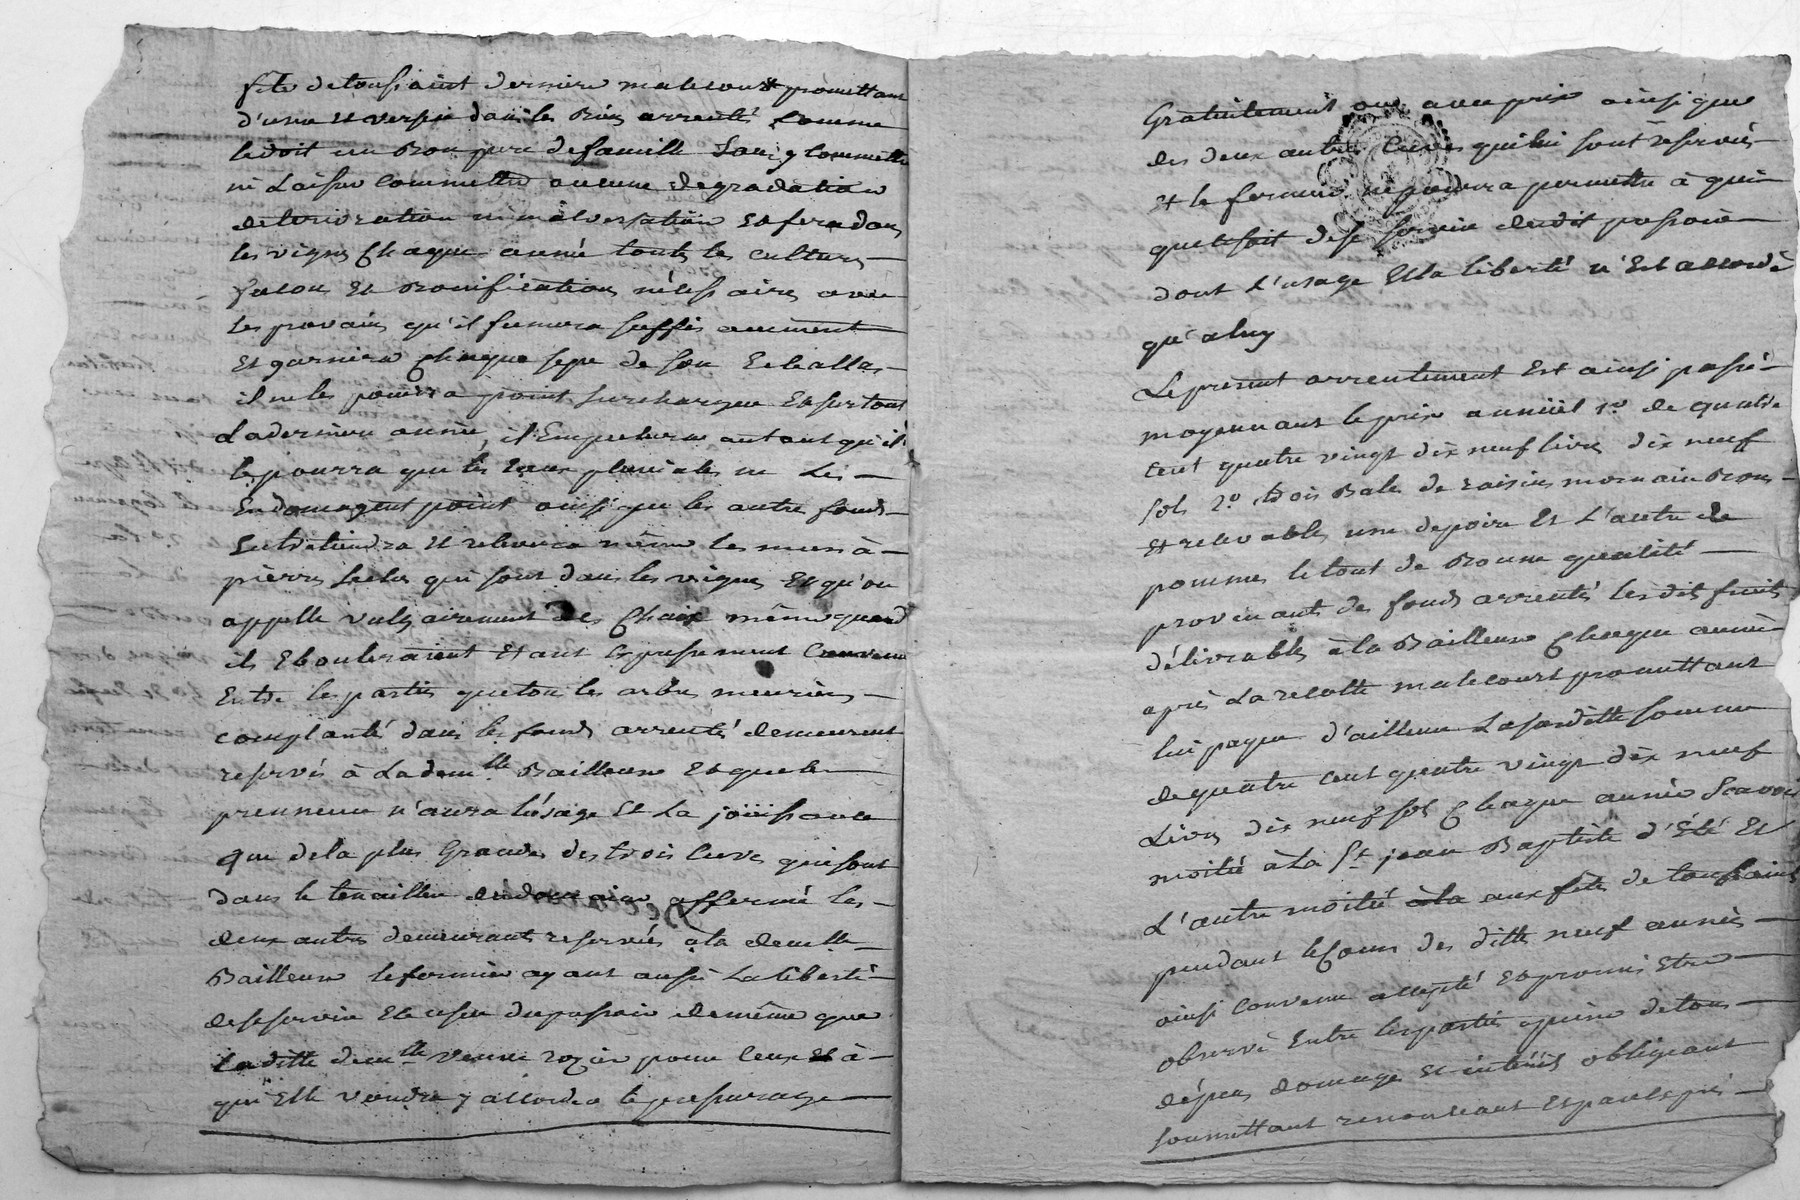 fête de toussaint derniere malecourt promettant
d'user et verser dans les Biens arrentés comme
le doit un Bon pere de famille sans y Commettre
ni Laisser Commettre aucune degradation
deterioration ni malversation et fera dans
les vignes Chaque année toutes les cultures
façons et Bonifications nécessaires avec
les provains qu'il fumera suffisamment
et garnira Chaque sepe de son Echallas
il ne les pourra point surcharger et surtout
La derniere année, il Empechera autant qu'il
le pourra que les Eaux pluviales ne Les
Endomagent point ainsi que les autre fonds
Entretiendra et relevera même les murs à
pierres seches qui sont dans les vignes et qu'on
appelle vulgairement des Chaix même quand
ils Ebouleraient Etant Expressement Convenu
Entre les parties que tou les arbres meuriers
complanté dans les fonds arrentés demeurent
reservés à La dem.lle Bailleuse et que le
prenneur n'aura L'usage et La joüissance
que de la plus Grande des trois Cuves qui sont
dans le tenaillier du domaine affermé les
deux autres demeurants reservées à la demlle
Bailleuse le fermier ayant aussi La liberté
de se servir et user du passoir de même que
La ditte dem.lle veuve rozier pour Ceux et à
qui Elle voudra y accorder le pressurage
Gratuitement ou avec prix ainsi que
des deux autres Cuves qui lui sont reservées
et le fermier ne pourra permettre à qui
que ce soit de se servir dudit passoir
dont L'usage Et la liberté n'Est accordé
qu'a luy
Le présent arrentement Est ainsi passé
moyennant le prix annüel 1.o de quatre
cent quatre vingt dix neuf livres dix neuf
sols 2.o trois Bales de raisins mornain Bons
et relevables une de poire et L'autre de
pommes le tout de Bonne qualité
provenants des fonds arrentés les dits fruits
délivrables à la Bailleuse Chaque année
après La recolte malecourt promettant
lui payer d'ailleurs La susditte somme
de quatre cent quatre vingt dix neuf
Livres dix neuf sols Chaque année Scavoir
moitié à La S.t jean Baptiste d'Eté Et
L'autre moitié à la aux fêtes de toussaint
pendant le Cours des dittes neuf années
ainsi Convenu accepté et promis Etre
observé Entre les parties a peine de tous
dépens domages et intérêts obligeant
soumettant renonceant et par exprès